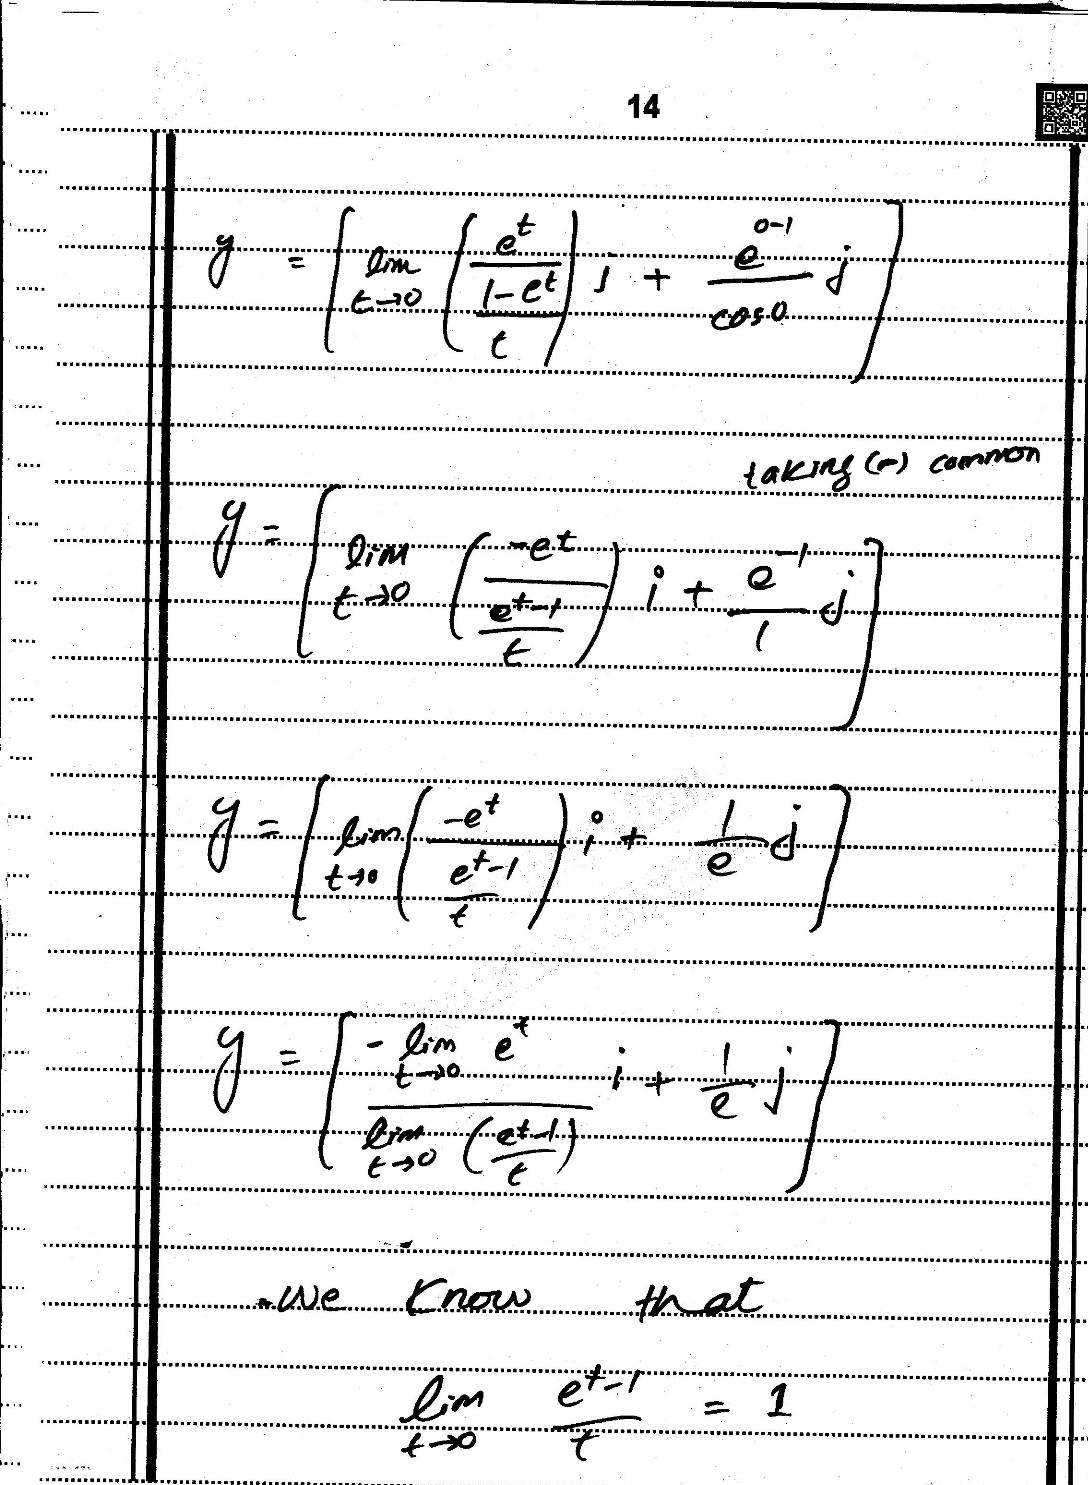 14
y = [ lim t→0 ( e^t / ((1-e^t)/t) ) i + e^(0-1)/cos0 j ]
taking (-) common
y = [ lim t→0 ( -e^t / ((e^t-1)/t) ) i + e^-1/1 j ]
y = [ lim t→0 ( -e^t / ((e^t-1)/t) ) i + 1/e j ]
y = [ - lim t→0 e^t / lim t→0 ((e^t-1)/t) i + 1/e j ]
We know that
lim t→0 (e^t-1)/t = 1